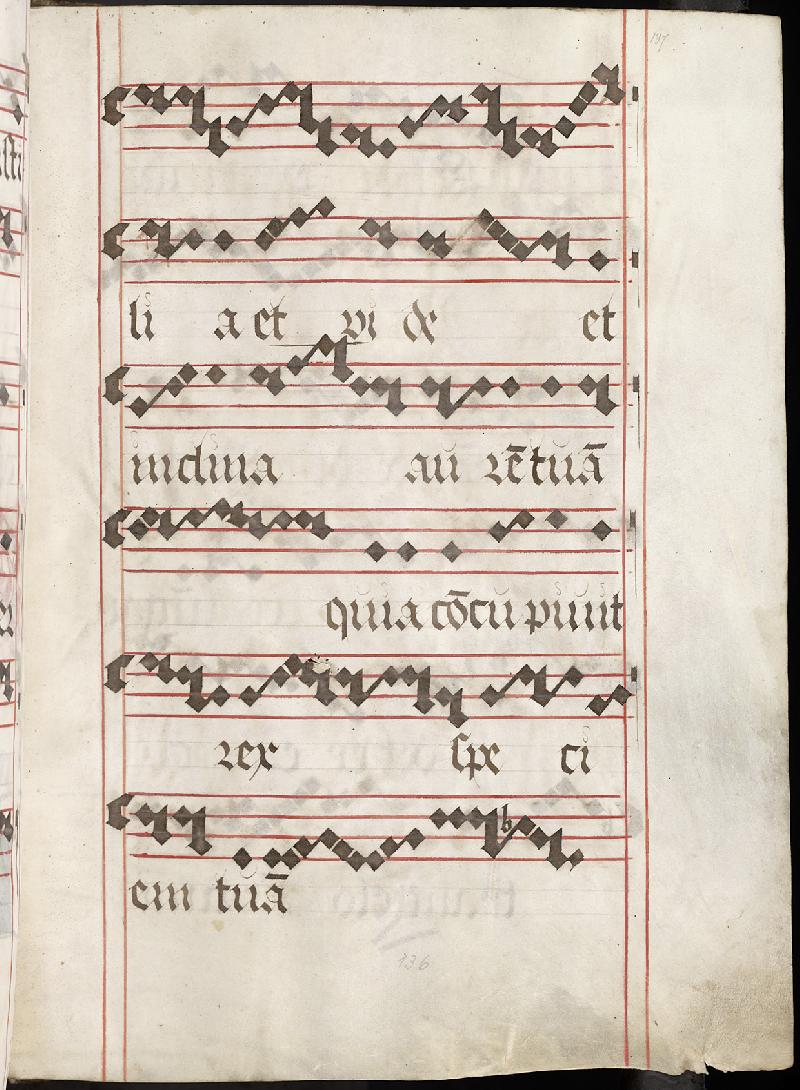 137
li a et vi de et
inclina au rē tuā
quia cōcu piuit
rex spe ci
em tuā
136